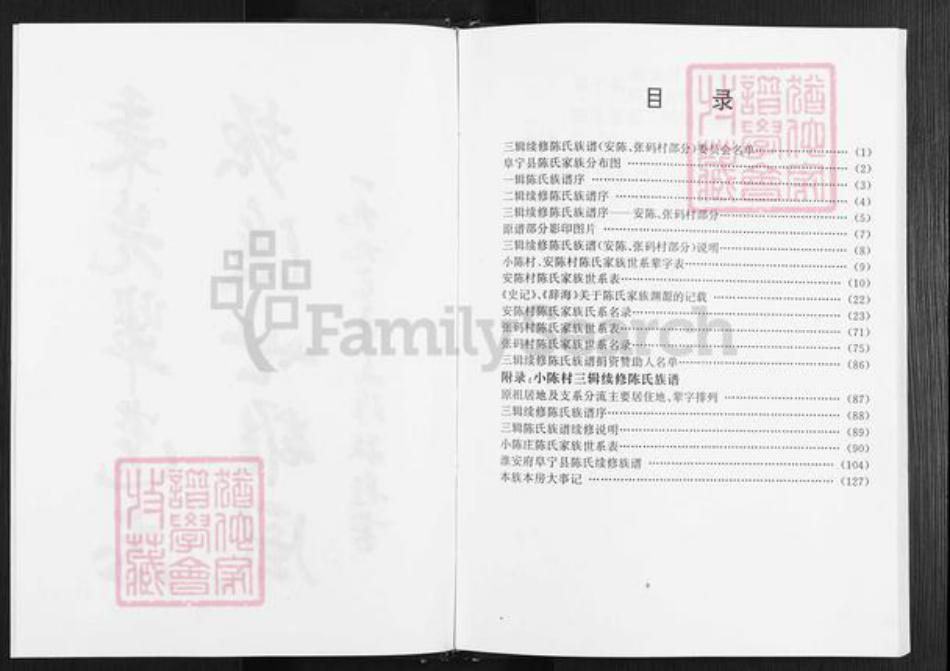 目 录
三辑续修陈氏族谱(安陈、张码村部分)委员会名单 (1)
阜宁县陈氏家族分布图 (2)
一辑陈氏族谱序 (3)
二辑续修陈氏族谱序 (4)
三辑续修陈氏族谱序——安陈、张码村部分 (5)
原谱部分影印图片 (7)
三辑续修陈氏族谱(安陈、张码村部分)说明 (8)
小陈村、安陈村陈氏家族世系辈字表 (9)
安陈村陈氏家族世系表 (10)
《史记》、《辞海》关于陈氏家族渊源的记载 (22)
安陈村陈氏家族氏系名录 (23)
张码村陈氏家族世系表 (71)
张码村陈氏家族世系名录 (75)
三辑续修陈氏族谱捐资赞助人名单 (86)
附录:小陈村三辑续修陈氏族谱
原祖居地及支系分流主要居住地、辈字排列 (87)
三辑续修陈氏族谱序 (88)
三辑陈氏族谱续修说明 (89)
小陈庄陈氏家族世系表 (90)
淮安府阜宁县陈氏续修族谱 (104)
本族本房大事记 (127)
FamilySearch
猶他家
譜學會
收藏
猶他家
譜學會
收藏